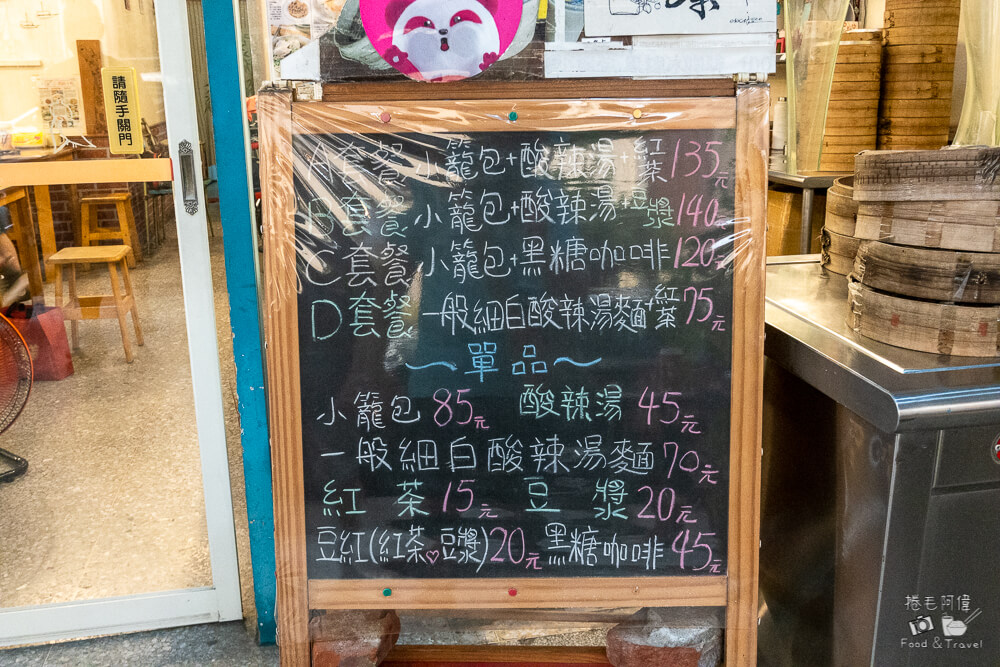 請隨手關門
A套餐 小籠包+酸辣湯+紅茶 135元
B套餐 小籠包+酸辣湯+豆漿 140元
C套餐 小籠包+黑糖咖啡 120元
D套餐 一般細白酸辣湯麵+紅茶 75元
~單品~
小籠包 85元 酸辣湯 45元
一般細白酸辣湯麵 70元
紅茶 15元 豆漿 20元
豆紅(紅茶♡豆漿)20元 黑糖咖啡 45元
捲毛阿偉
Food & Travel